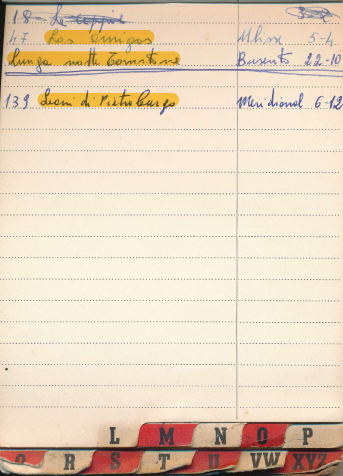 18 - Le coppie
47 Los Amigos Ulisse 5-4
Lunga notte Tomstone Busento 22-10
139 Leoni di Pietroburgo Meridional 6-12
L M N O P
Q R S T U VW XYZ